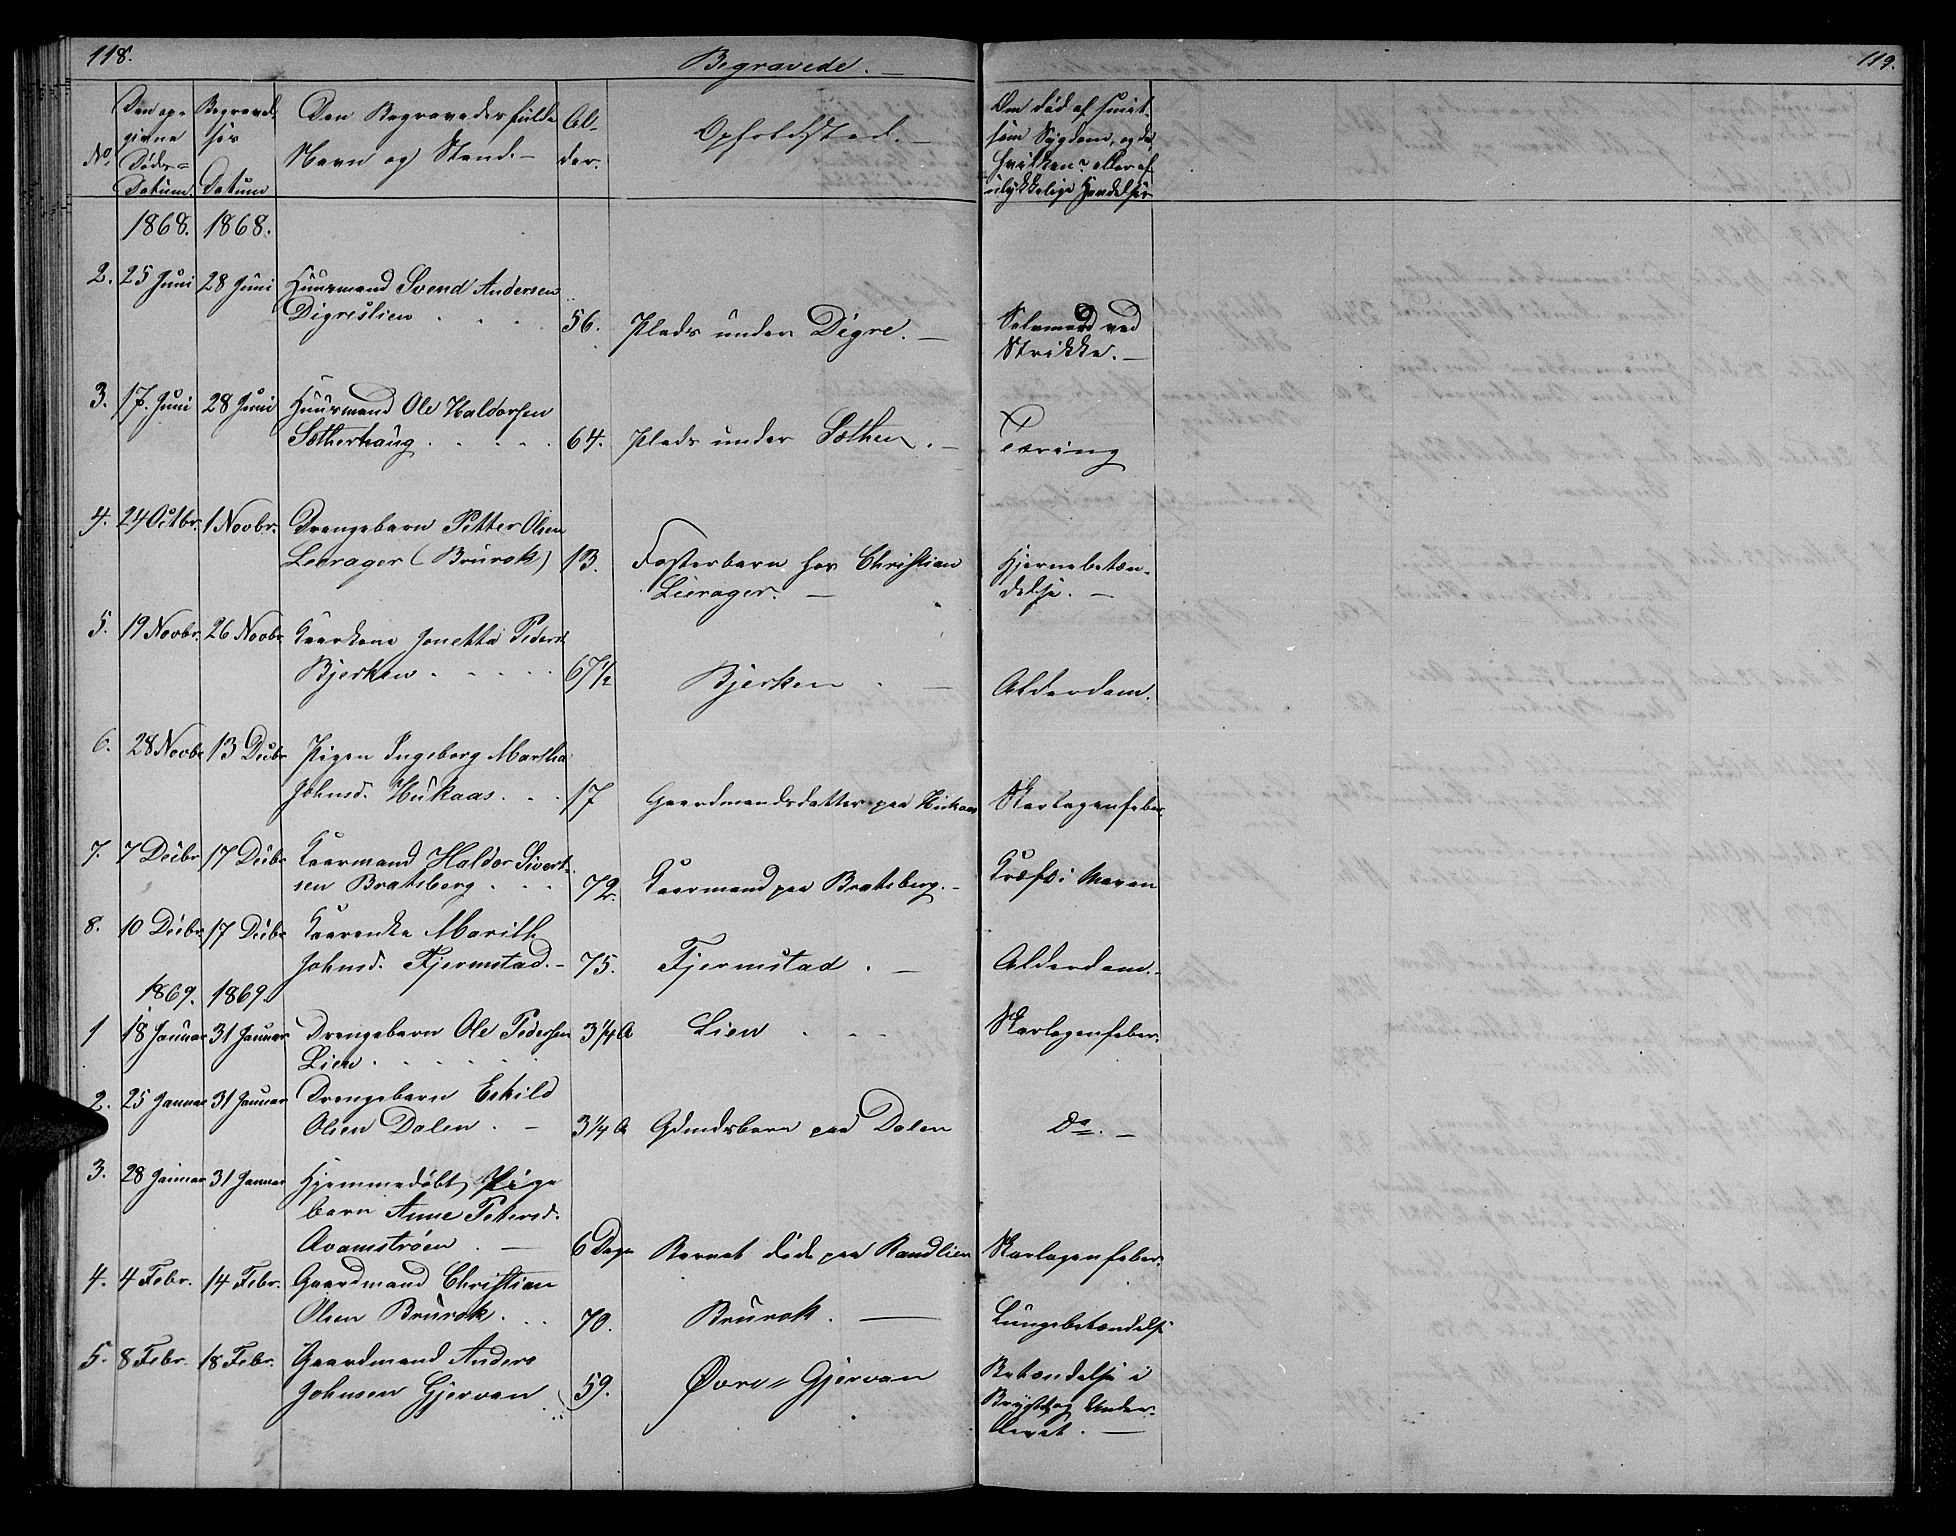 118.
Begravede. —
119.
No. Den op-givne Døds-Datum. Begravelses Datum Den Begravedes fulde Navn og Stand. — Alder. Opholdssted. — Om død af smitsom Sygdom, og da hvilken? eller af ulykkelige Hændelser
1868. 1868.
2. 25 Juni 28 Juni Huusmand Svend Andersen
Digreslien . . . 56. Plads under Digre. — Selvmord ved
Strikke. —
3. 17. Juni 28 Juni Huusmand Ole Haldorsen
Sætherhaug . . . . 64. Plads under Sæther. — Tæring
4. 24 Octbr. 1 Novbr. Drengebarn Petter Olsen
Leirager (Brurok) 13. Fosterbarn hos Christian Hjernebetæn-
Leirager. — delse. —
5. 19 Novbr. 26 Novbr. Kaarkone Jonetta Pedersd.
Bjerken . . . . . 67 1/2 Bjerken . — Alderdom.
6. 28 Novbr 13 Decbr Pigen Ingeborg Martha
Johnsd. Hukaas . . . 17 Gaardmandsdatter paa Hukaas Skarlagensfeber.
7. 7 Decbr 17 Decbr Kaarmand Haldor Sivert-
sen Bratsberg . . . 72. Kaarmand paa Bratsberg. — Kræft i Maven
8. 10 Decbr. 17 Decbr Kaarenke Marith
Johnsd. Fjermstad. — 75. Fjermstad . — Alderdom. —
1869. 1869.
1 18 Januar 31 Januar Drengebarn Ole Pedersen 3 1/4 A Lien . . . Skarlagensfeber.
Lien . . . . . .
2. 25 Januar 31 Januar Drengebarn Eskild
Olsen Dalen . — 3 1/4 A Gdmdsbarn paa Dalen Do. —
3. 28 Januar 31 Januar Hjemmedøbt Pige
barn Anne Petersd.
Kvamstrøen . — 6 Dage Barnet døde paa Randlien Skarlagensfeber.
4. 4 Febr. 14 Febr. Gaardmand Christian
Olsen Brurok. . . 70. Brurok. — Lungebetændelse
5. 8 Febr. 18 Febr. Gaardmand Anders
Johnsen Gjervan 59. Øvre-Gjervan Betændelse i
Bryst og Under-
livet . —